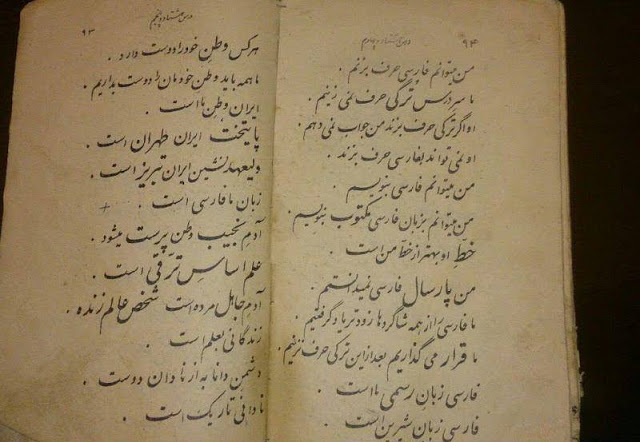 درس هشتاد و چهارم ۹۲
من میتوانم فارسی حرف بزنم .
ما سر درس ترکی حرف نمی زنیم .
او اگر ترکی حرف بزند من جواب نمی دهم .
او نمی تواند بفارسی حرف بزند .
من میتوانم فارسی بنویسم .
من میتوانم بزبان فارسی مکتوب بنویسم .
خط او بهتر از خط من است .
من پارسال فارسی نمیدانستم .
ما فارسی را از همه شاگردها زودتر یاد گرفتیم .
ما قرار می گذاریم بعد از این ترکی حرف نزنیم .
فارسی زبان رسمی ما است .
فارسی زبان شیرین است .
درس هشتاد و پنجم ۹۳
هرکس وطن خود را دوست دارد .
ما همه باید وطن خودمان را دوست بداریم .
ایران وطن ما است .
پایتخت ایران طهران است .
ولیعهد نشین ایران تبریز است .
زبان ما فارسی است .
آدم نجیب وطن پرست میشود .
علم اساس ترقی است .
آدم جاهل مرده است شخص عالم زنده .
زندگانی بعلم است .
دشمن دانا به از نادان دوست .
نادانی تاریک است .